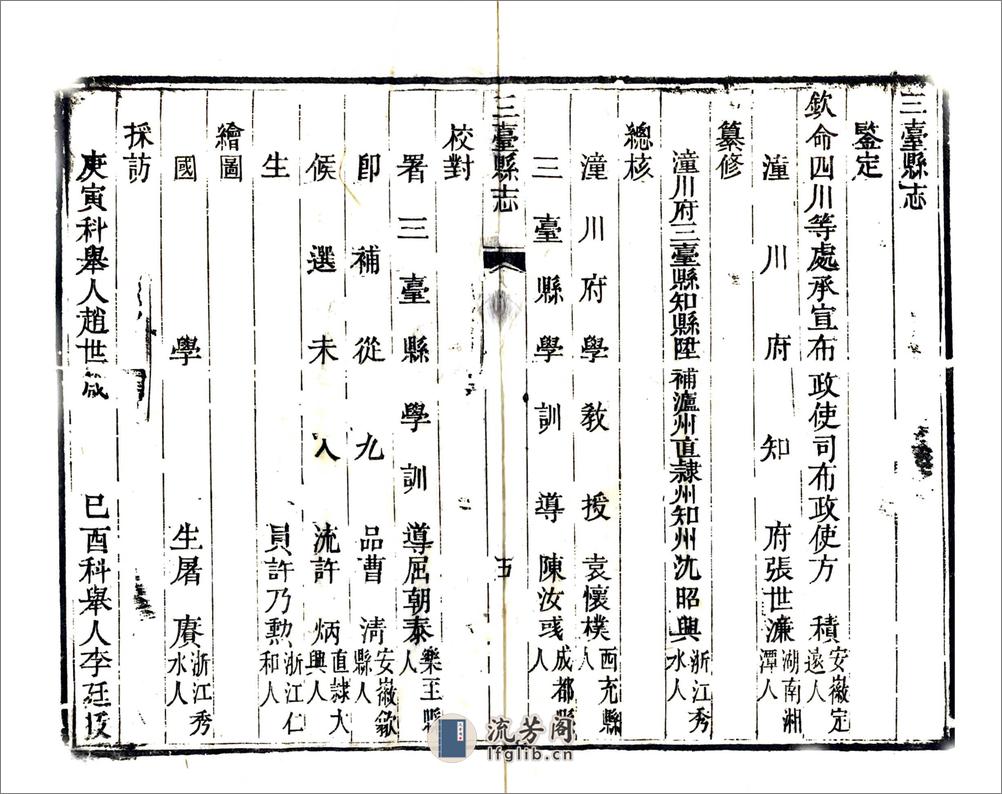 三臺縣志
鑒定
欽命四川等處承宣布政使司布政使方積安徽定遠人
潼川府知府張世濂湖南湘潭人
纂修
潼川府三臺縣知縣陞補瀘州直隸州知州沈昭興浙江秀水人
總核
潼川府學教授袁懷樸西充縣人
三臺縣學訓導陳汝彧成都縣人
三臺縣志
五
校對
署三臺縣學訓導屈朝泰樂至縣人
卽補從九品曹淸安徽歙縣人
候選未入流許炳直隸大興人
生員許乃勲浙江仁和人
繪圖
國學生屠賡浙江秀水人
採訪
庚寅科舉人趙世箴
巳酉科舉人李廷
流芳阁
lfglib.cn